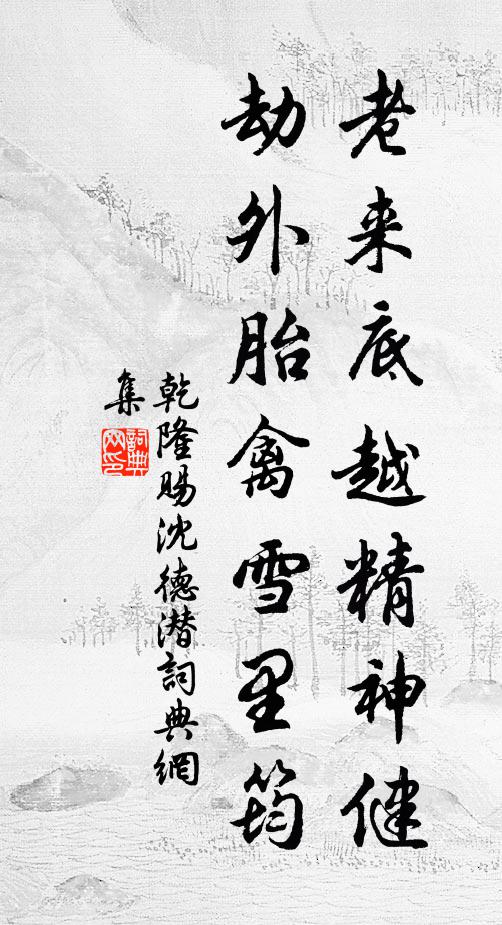 老来底越精神健
劫外胎禽雪里筠
乾隆賜沈德潜詞典網
集
詞典网印